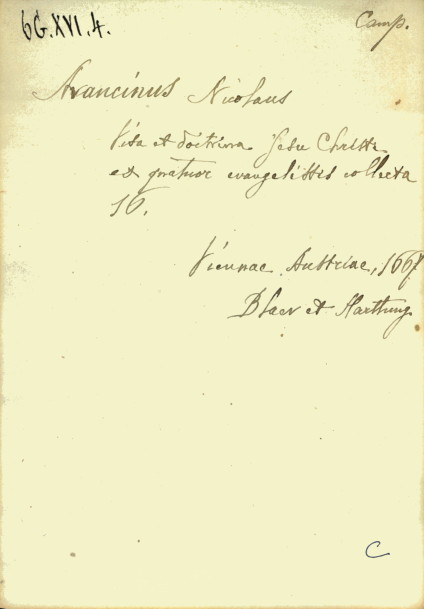 6G.XVI.4.
Camp.
Avancinus Nicolaus
Vita et doctrina Jesu Christi
ex quatuor evangelistis collecta
16.
Viennae Austriae, 1667
Blaev et Harttung
C